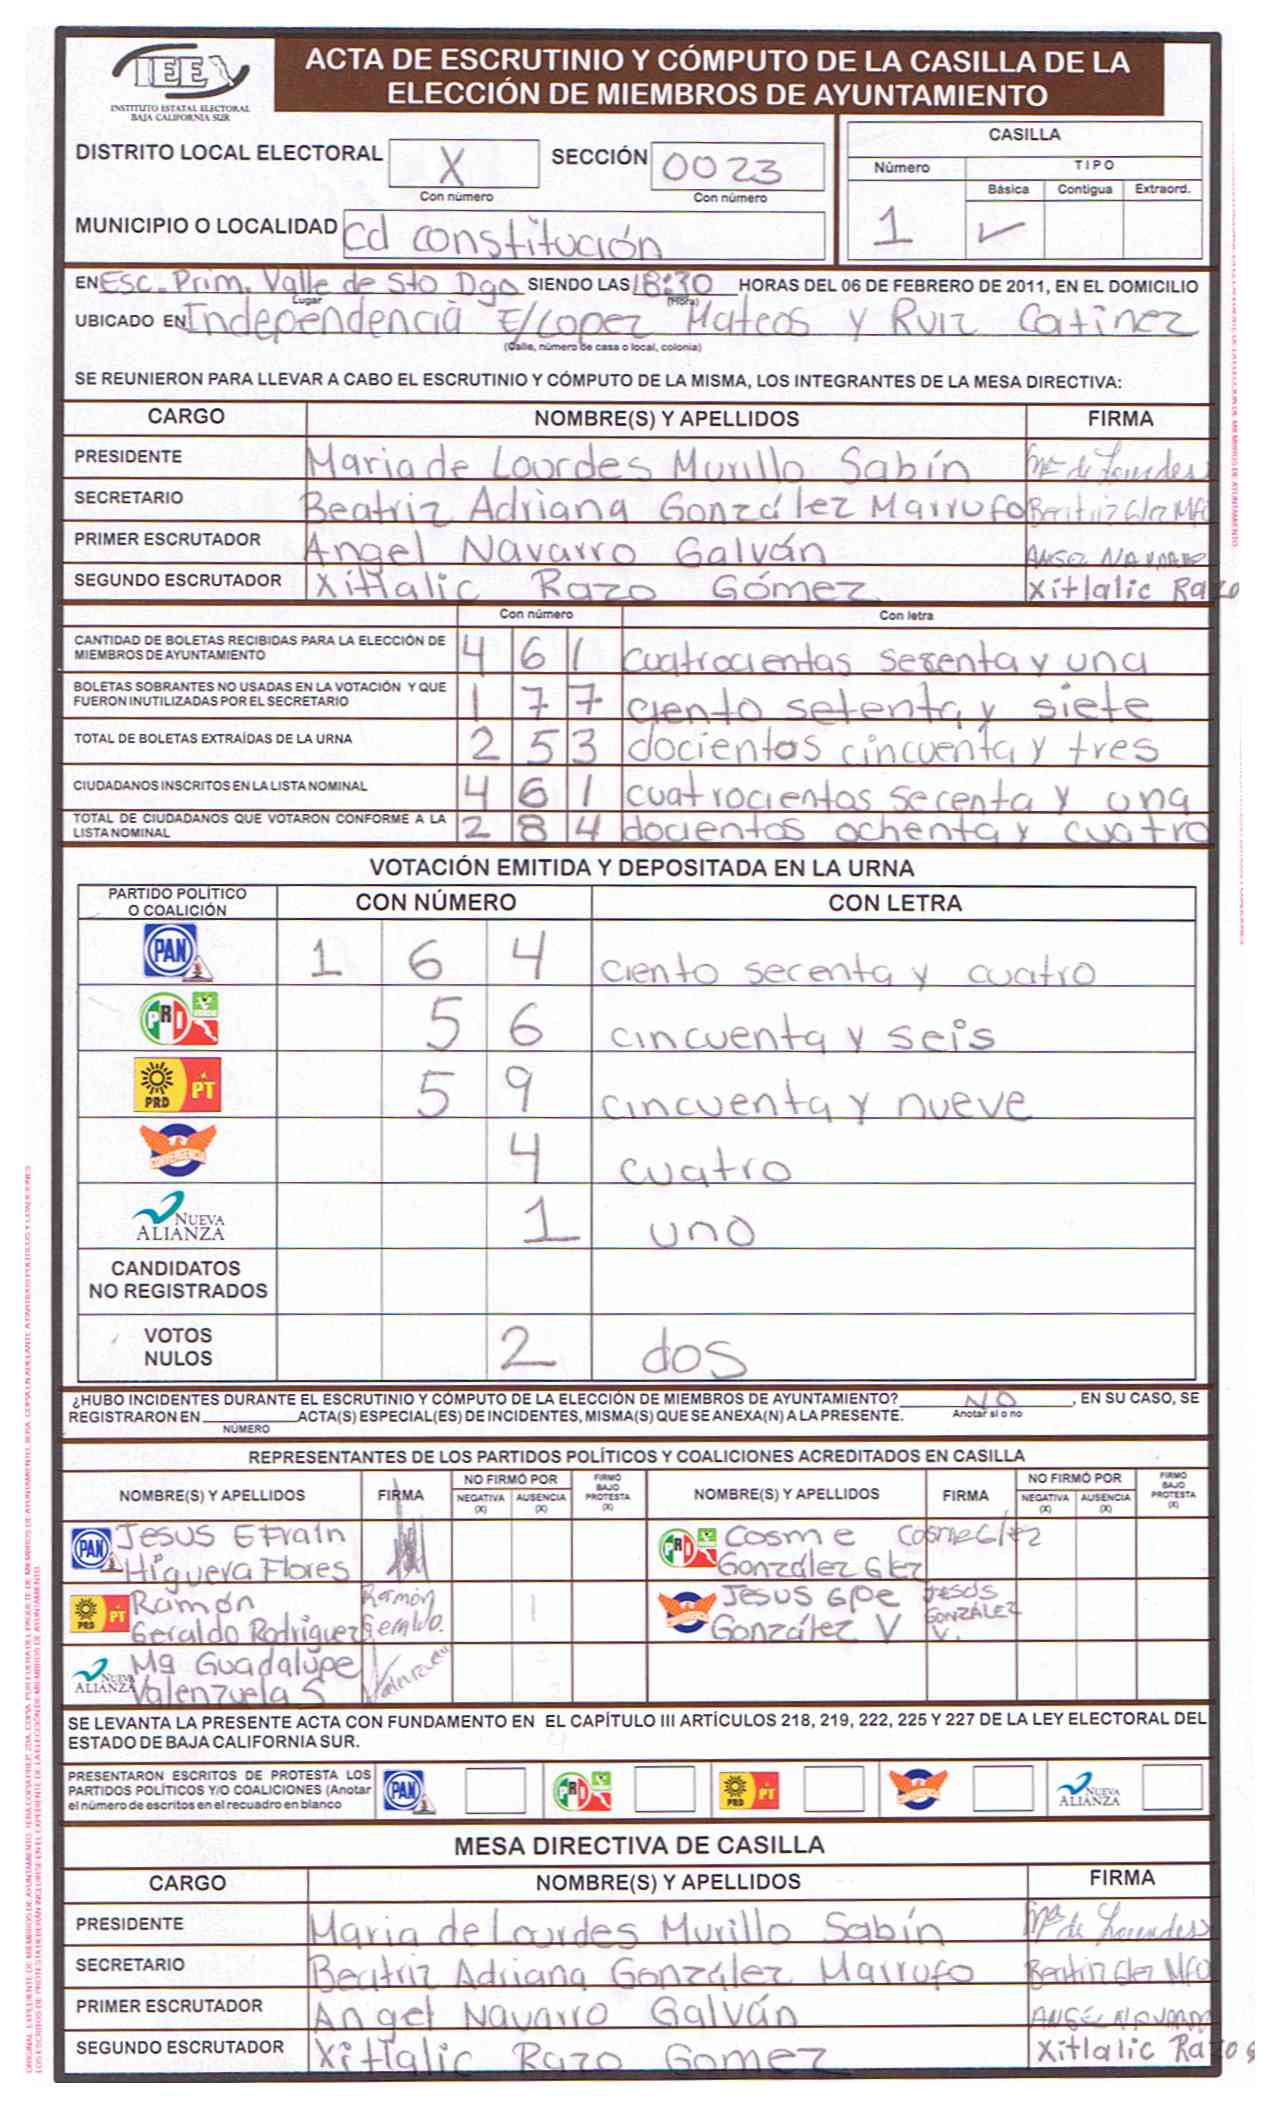 IEEX
INSTITUTO ESTATAL ELECTORAL
BAJA CALIFORNIA SUR
ACTA DE ESCRUTINIO Y CÓMPUTO DE LA CASILLA DE LA
ELECCIÓN DE MIEMBROS DE AYUNTAMIENTO
DISTRITO LOCAL ELECTORAL X SECCIÓN 0023
Con número Con número
MUNICIPIO O LOCALIDAD Cd constitución
CASILLA
Número TIPO
Básica Contigua Extraord.
1 ✓
EN Esc. Prim. Valle de Sto Dgo SIENDO LAS 18:30 HORAS DEL 06 DE FEBRERO DE 2011, EN EL DOMICILIO
Lugar (Hora)
UBICADO EN Independencia E/Lopez Mateos y Ruiz Catinez
(Calle, número de casa o local, colonia)
SE REUNIERON PARA LLEVAR A CABO EL ESCRUTINIO Y CÓMPUTO DE LA MISMA, LOS INTEGRANTES DE LA MESA DIRECTIVA:
CARGO NOMBRE(S) Y APELLIDOS FIRMA
PRESIDENTE Maria de Lourdes Murillo Sabín Ma de Lourdes
SECRETARIO Beatriz Adriana González Marrufo Beatriz Glez Mfo
PRIMER ESCRUTADOR Angel Navarro Galván ANGEL NAVARRO
SEGUNDO ESCRUTADOR Xitlalic Razo Gómez Xitlalic Razo
Con número Con letra
CANTIDAD DE BOLETAS RECIBIDAS PARA LA ELECCIÓN DE
MIEMBROS DE AYUNTAMIENTO 4 6 1 cuatrocientas sesenta y una
BOLETAS SOBRANTES NO USADAS EN LA VOTACIÓN Y QUE
FUERON INUTILIZADAS POR EL SECRETARIO 1 7 7 ciento setenta y siete
TOTAL DE BOLETAS EXTRAÍDAS DE LA URNA 2 5 3 docientos cincuenta y tres
CIUDADANOS INSCRITOS EN LA LISTA NOMINAL 4 6 1 cuatrocientas secenta y una
TOTAL DE CIUDADANOS QUE VOTARON CONFORME A LA
LISTA NOMINAL 2 8 4 docientos ochenta y cuatro
VOTACIÓN EMITIDA Y DEPOSITADA EN LA URNA
PARTIDO POLÍTICO
O COALICIÓN CON NÚMERO CON LETRA
PAN 1 6 4 ciento secenta y cuatro
PRI 5 6 cincuenta y seis
PRD PT 5 9 cincuenta y nueve
CONVERGENCIA 4 cuatro
NUEVA
ALIANZA 1 uno
CANDIDATOS
NO REGISTRADOS
VOTOS
NULOS 2 dos
¿HUBO INCIDENTES DURANTE EL ESCRUTINIO Y CÓMPUTO DE LA ELECCIÓN DE MIEMBROS DE AYUNTAMIENTO? NO , EN SU CASO, SE
Anotar si o no
REGISTRARON EN ACTA(S) ESPECIAL(ES) DE INCIDENTES, MISMA(S) QUE SE ANEXA(N) A LA PRESENTE.
NÚMERO
REPRESENTANTES DE LOS PARTIDOS POLÍTICOS Y COALICIONES ACREDITADOS EN CASILLA
NOMBRE(S) Y APELLIDOS FIRMA NO FIRMÓ POR NEGATIVA (X) AUSENCIA (X) FIRMÓ BAJO PROTESTA (X) NOMBRE(S) Y APELLIDOS FIRMA NO FIRMÓ POR NEGATIVA (X) AUSENCIA (X) FIRMÓ BAJO PROTESTA (X)
PAN Jesus Efrain
Higuera Flores
PRI Cosme CosmeGlez
González Glez
PRD PT Ramón Ramón
Geraldo Rodriguez
Jesus Gpe JESÚS
González V GONZÁLEZ V.
NUEVA ALIANZA Ma Guadalupe
Valenzuela S Valenzuela
SE LEVANTA LA PRESENTE ACTA CON FUNDAMENTO EN EL CAPÍTULO III ARTÍCULOS 218, 219, 222, 225 Y 227 DE LA LEY ELECTORAL DEL
ESTADO DE BAJA CALIFORNIA SUR.
PRESENTARON ESCRITOS DE PROTESTA LOS
PARTIDOS POLÍTICOS Y/O COALICIONES (Anotar
el número de escritos en el recuadro en blanco
PAN PRI PRD PT NUEVA ALIANZA
MESA DIRECTIVA DE CASILLA
CARGO NOMBRE(S) Y APELLIDOS FIRMA
PRESIDENTE Maria de Lourdes Murillo Sabín Ma de Lourdes
SECRETARIO Beatriz Adriana González Marrufo Beatriz Glez Mfo
PRIMER ESCRUTADOR Angel Navarro Galván
SEGUNDO ESCRUTADOR Xitlalic Razo Gomez Xitlalic Razo G